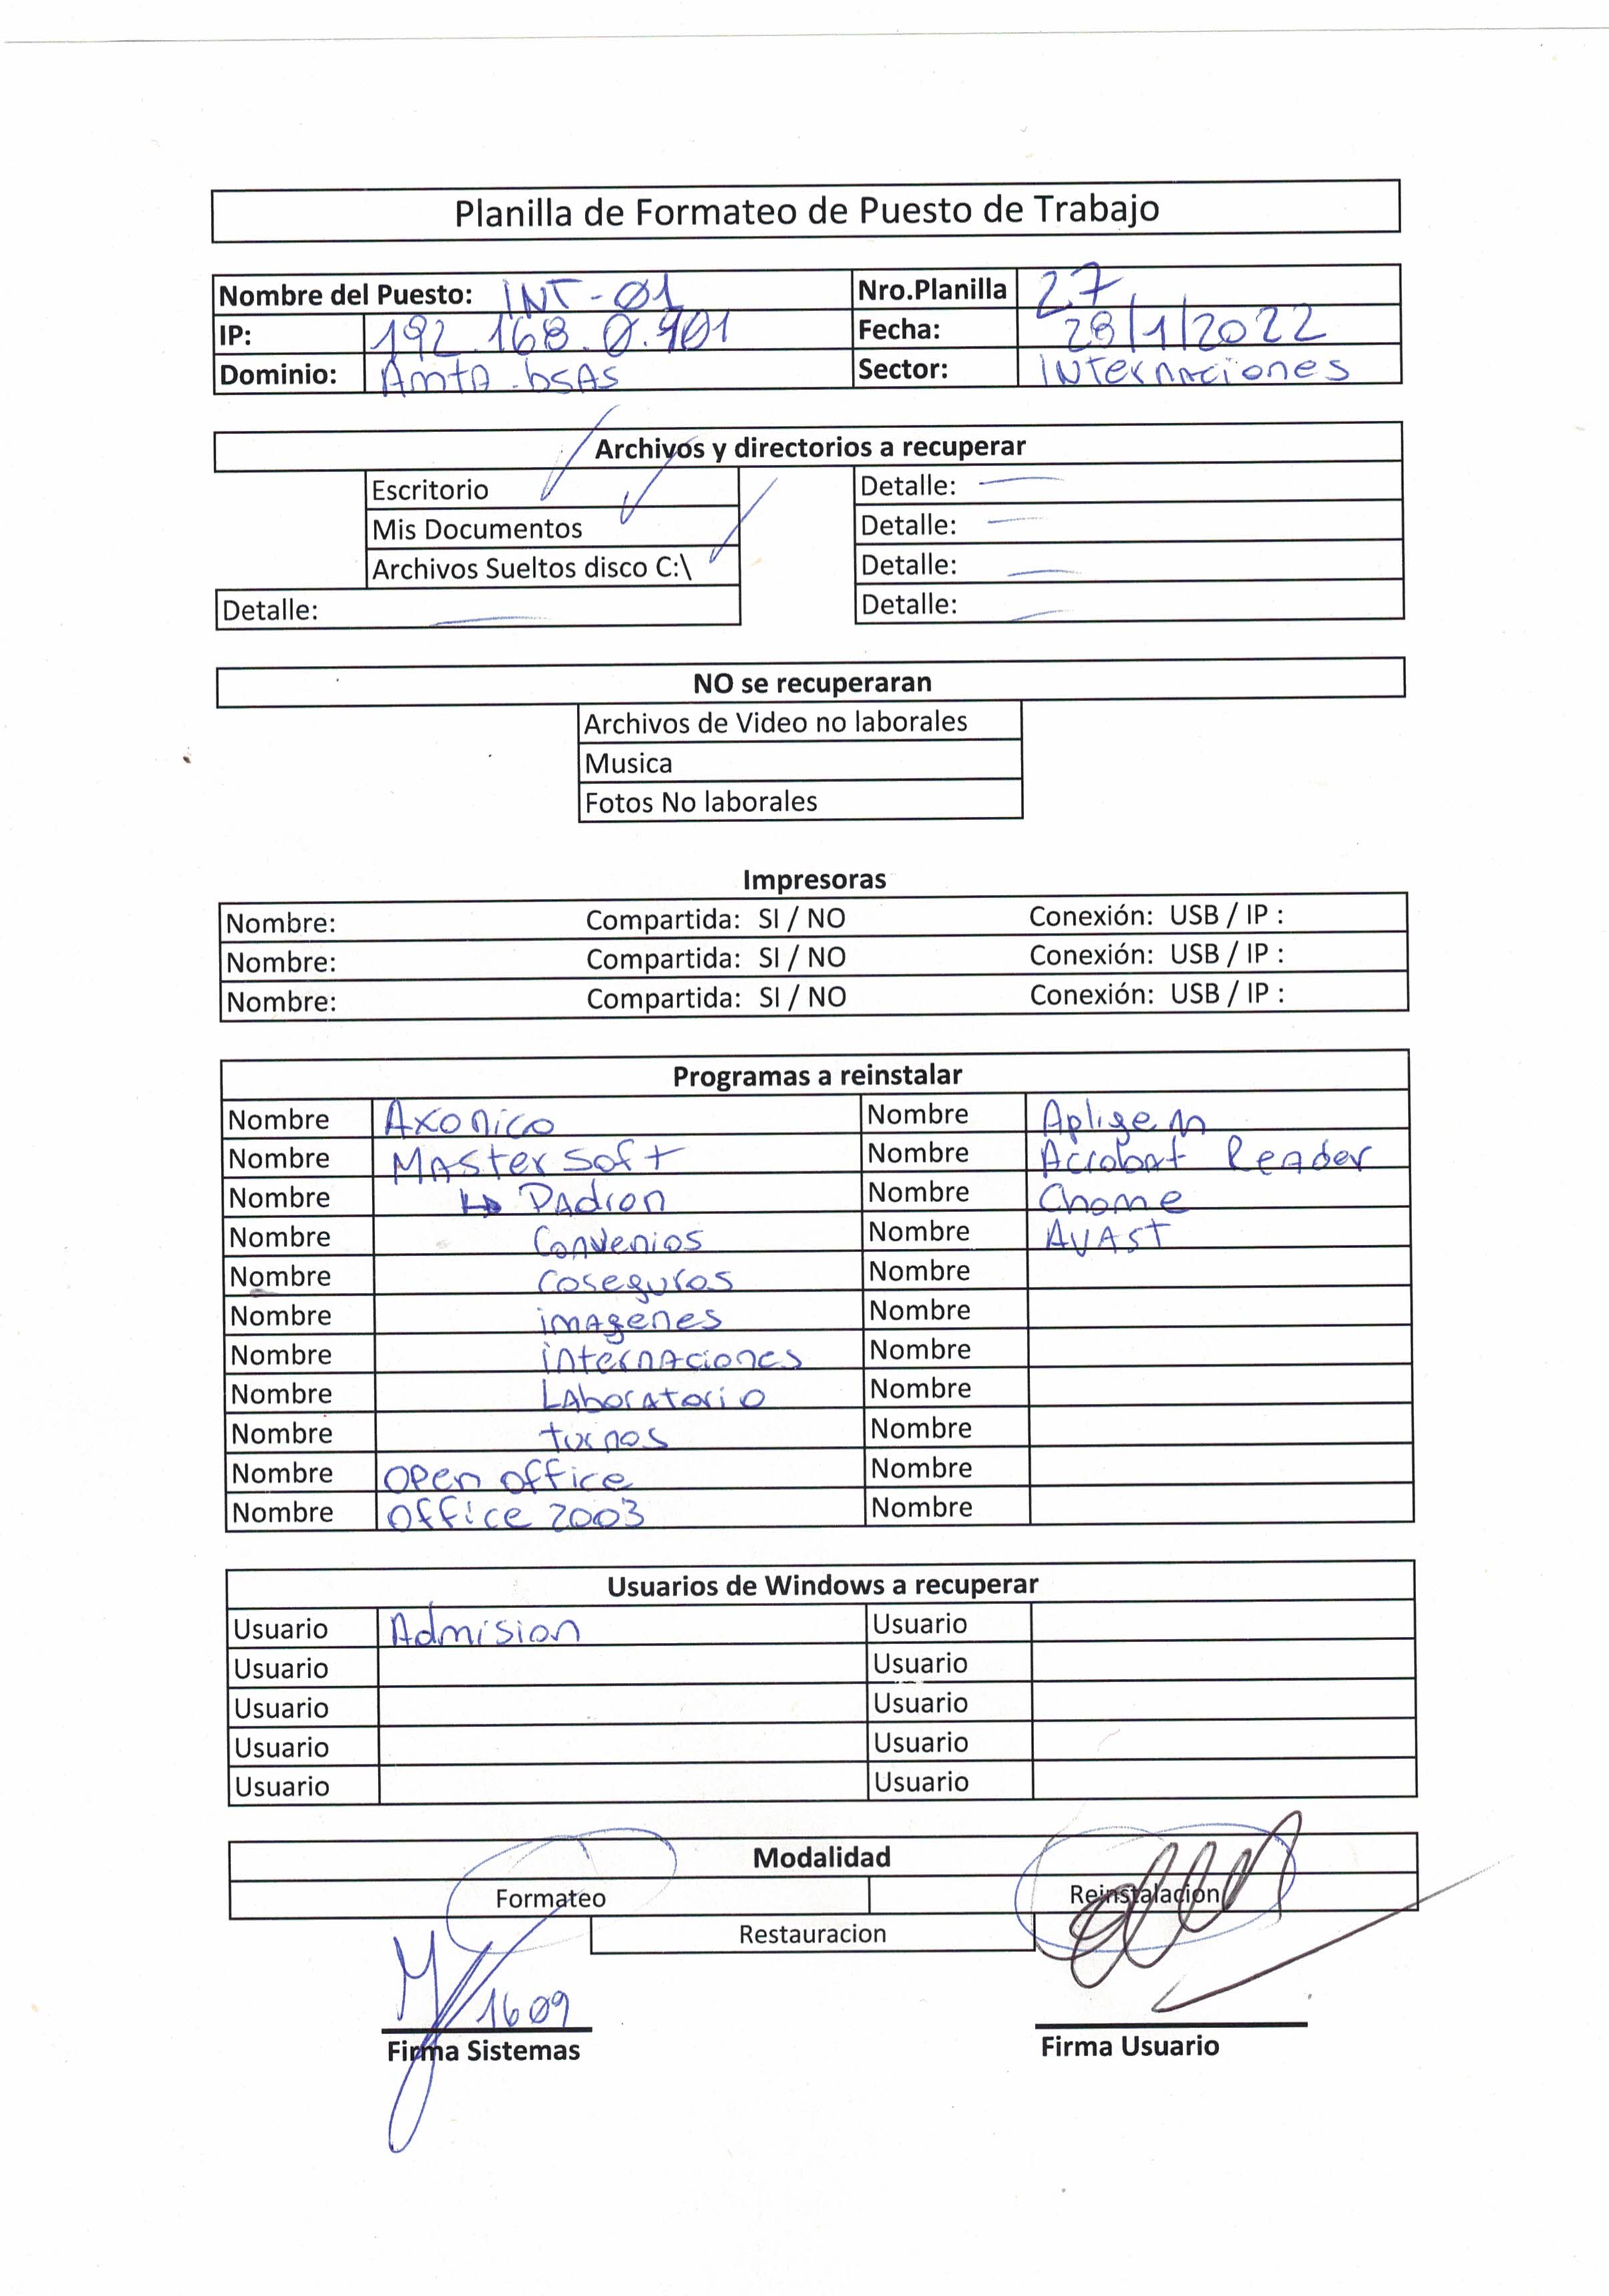 Planilla de Formateo de Puesto de Trabajo
Nombre del Puesto: INT-01 Nro.Planilla 27
IP: 192.168.0. Fecha: 28/1/2022
Dominio: Amta.bsAs Sector: Internaciones
Archivos y directorios a recuperar
Escritorio Detalle:
Mis Documentos Detalle:
Archivos Sueltos disco C:\ Detalle:
Detalle: Detalle:
NO se recuperaran
Archivos de Video no laborales
Musica
Fotos No laborales
Impresoras
Nombre: Compartida: SI / NO Conexión: USB / IP :
Nombre: Compartida: SI / NO Conexión: USB / IP :
Nombre: Compartida: SI / NO Conexión: USB / IP :
Programas a reinstalar
Nombre Axonico Nombre Apligem
Nombre Master Soft Nombre Acrobat Reader
Nombre Padron Nombre Chome
Nombre Convenios Nombre AVAST
Nombre Coseguros Nombre
Nombre imagenes Nombre
Nombre internaciones Nombre
Nombre Laboratorio Nombre
Nombre turnos Nombre
Nombre Open office Nombre
Nombre Office 2003 Nombre
Usuarios de Windows a recuperar
Usuario Admision Usuario
Usuario Usuario
Usuario Usuario
Usuario Usuario
Usuario Usuario
Modalidad
Formateo Reinstalacion
Restauracion
1609
Firma Sistemas Firma Usuario